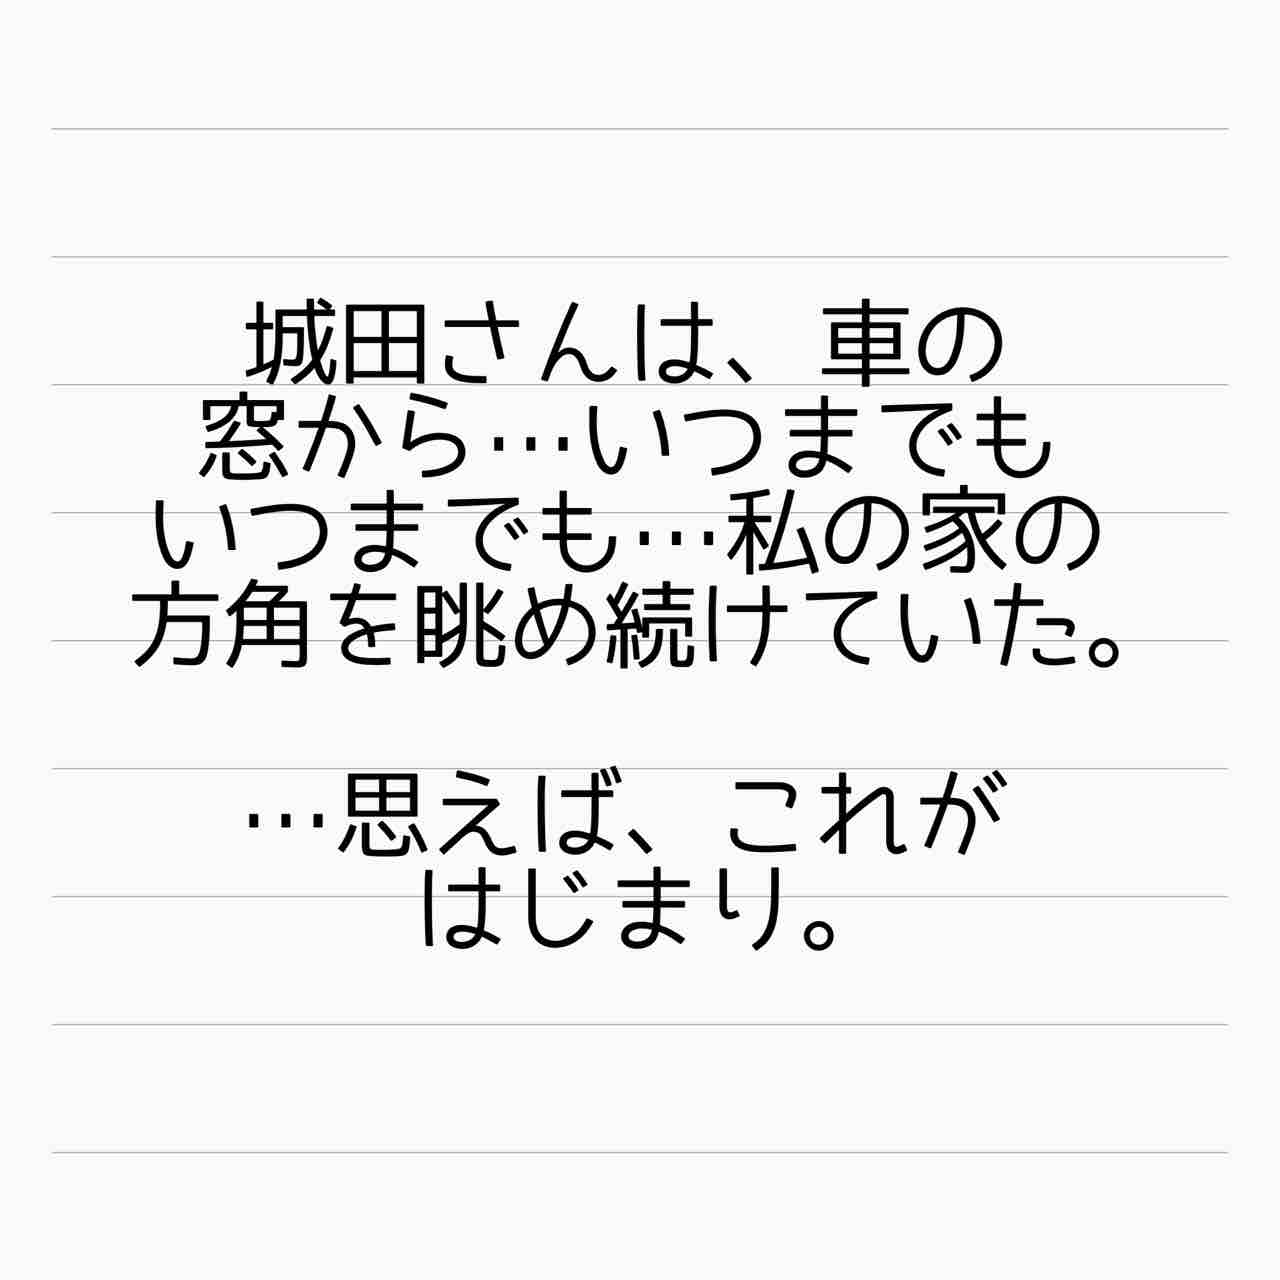 城田さんは、車の
窓から…いつまでも
いつまでも…私の家の
方角を眺め続けていた。
…思えば、これが
はじまり。